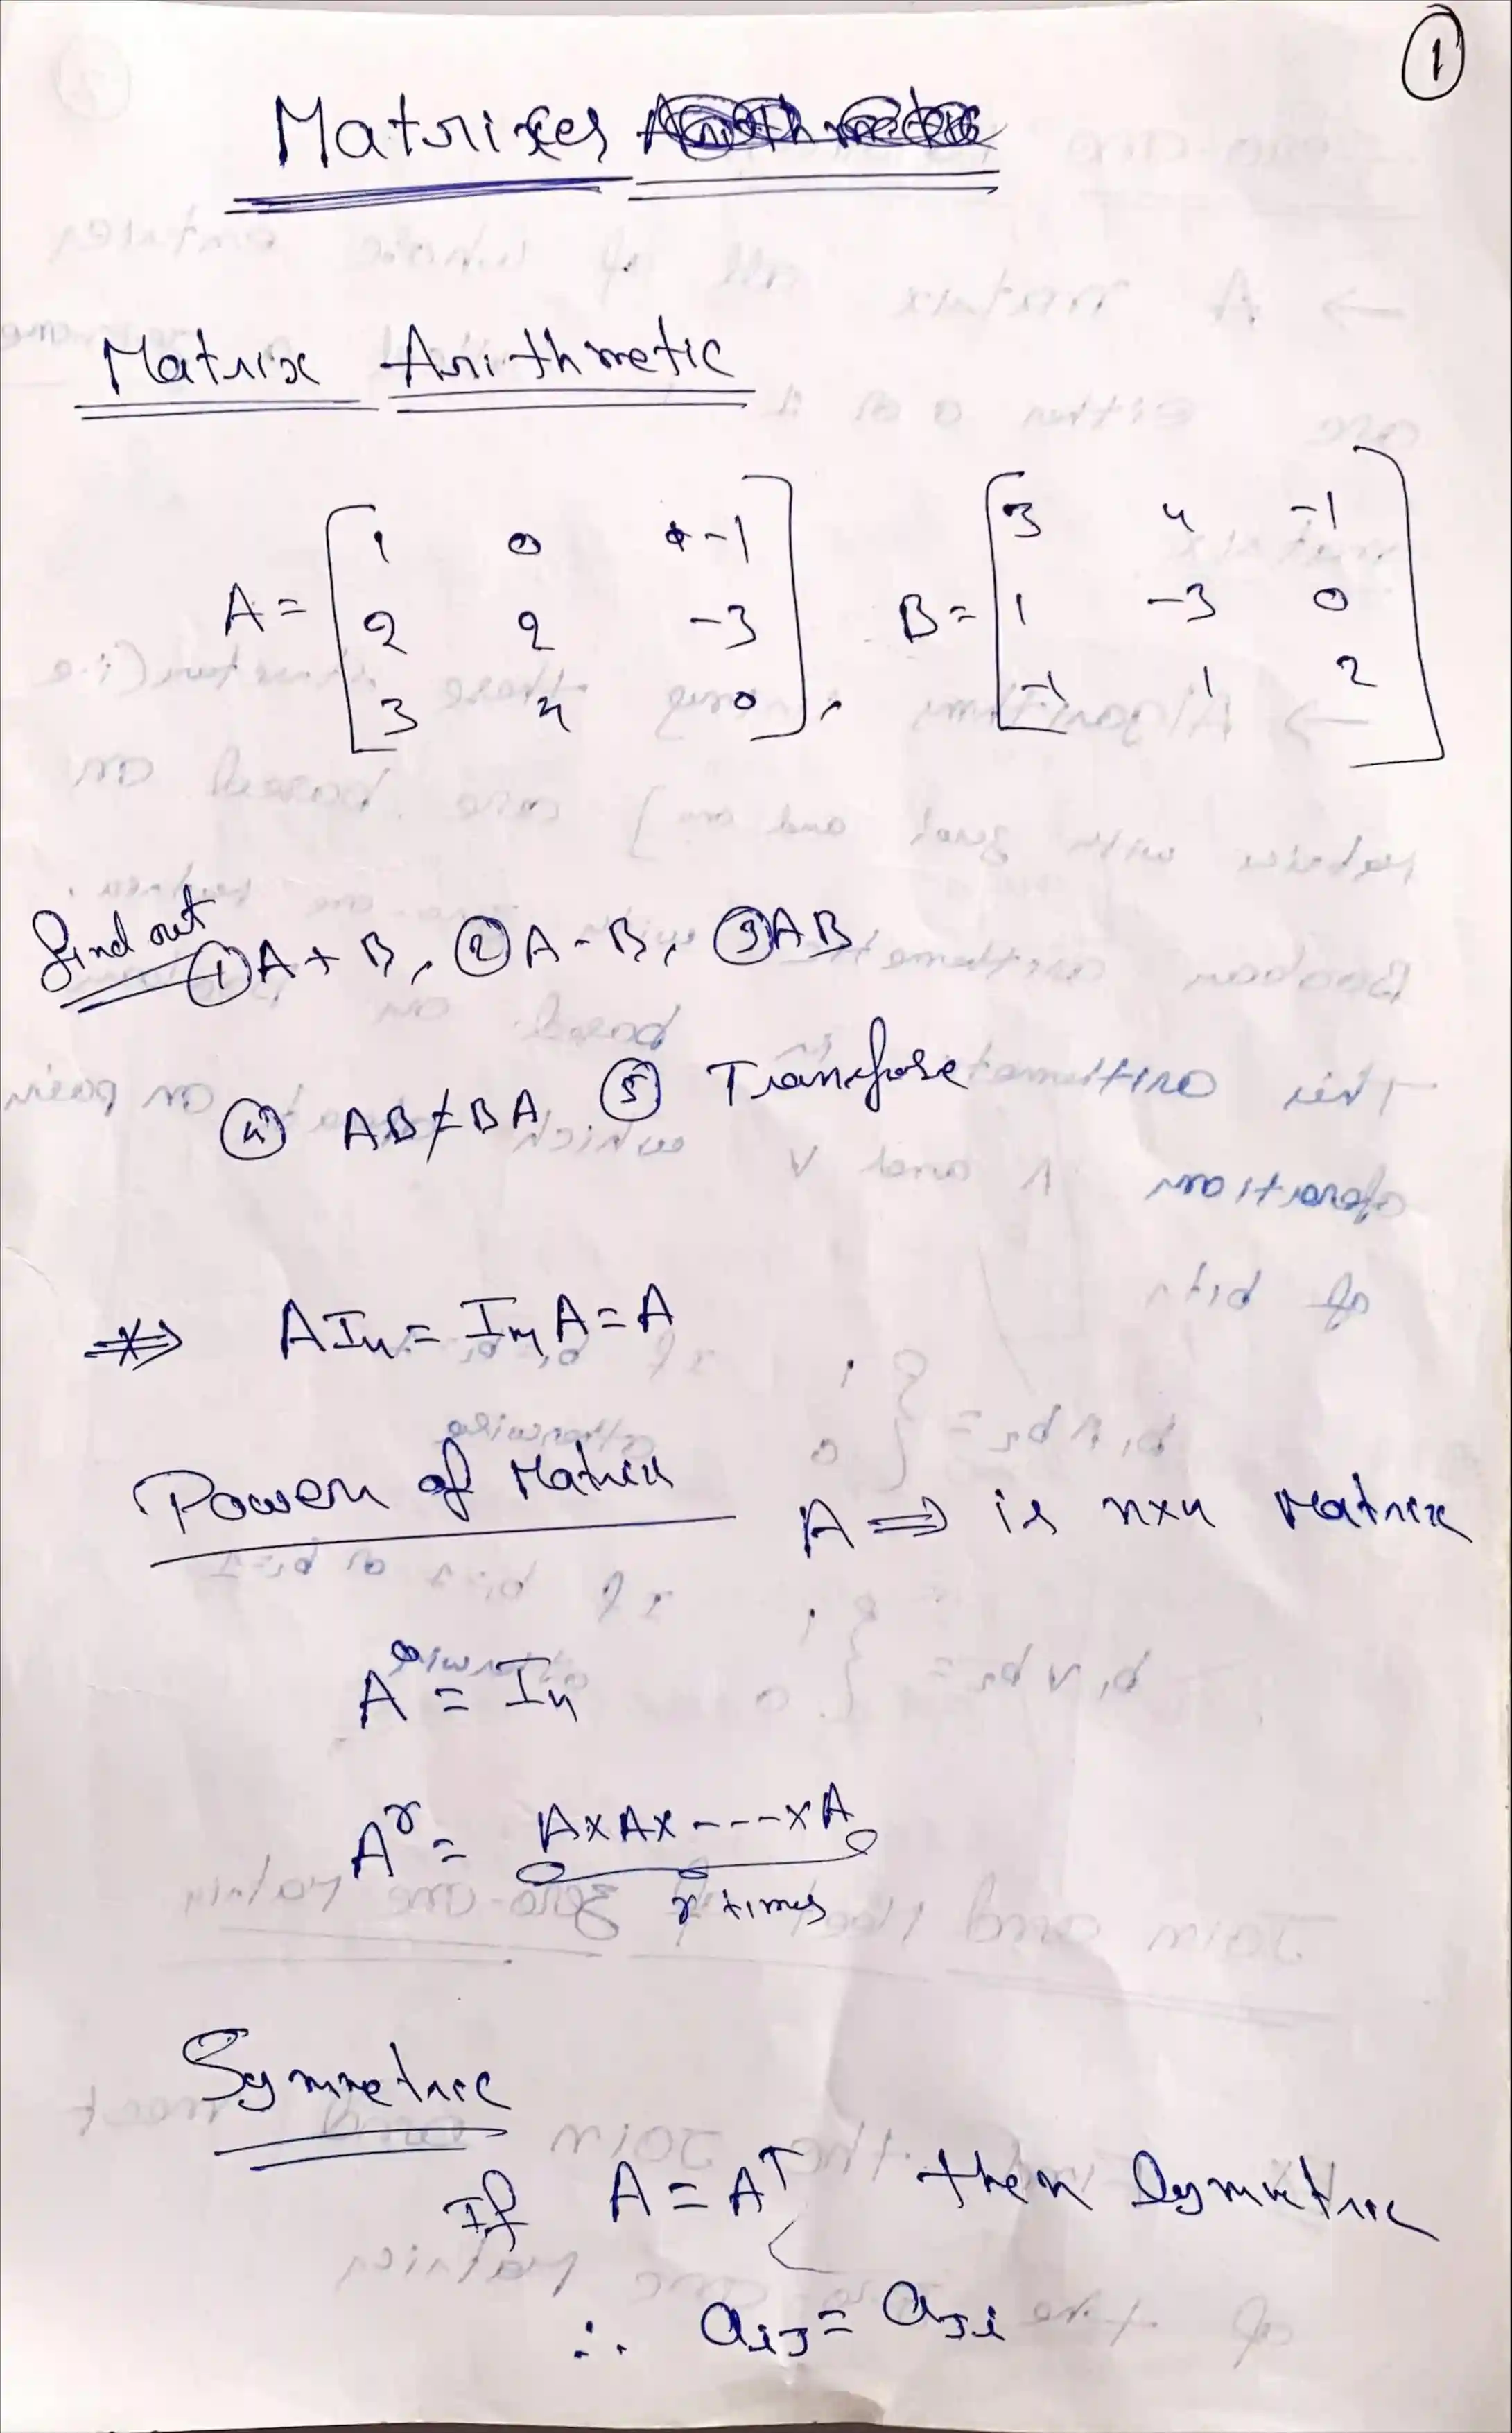 1
Matrixes
Matrix Arithmetic
A = [ 1 0 -1
2 2 -3
3 4 0 ] , B = [ 3 4 -1
1 -3 0
-1 1 2 ]
find out ① A + B, ② A - B, ③ AB,
④ AB ≠ BA, ⑤ Transpose
⇒ AIn = Im A = A
Power of Matrix
A ⇒ is nxn Matrix
A⁰ = In
Aʳ = A x A x ---- x A
r times
Symmetric
If A = Aᵀ then Symmetric
∴ aij = aji